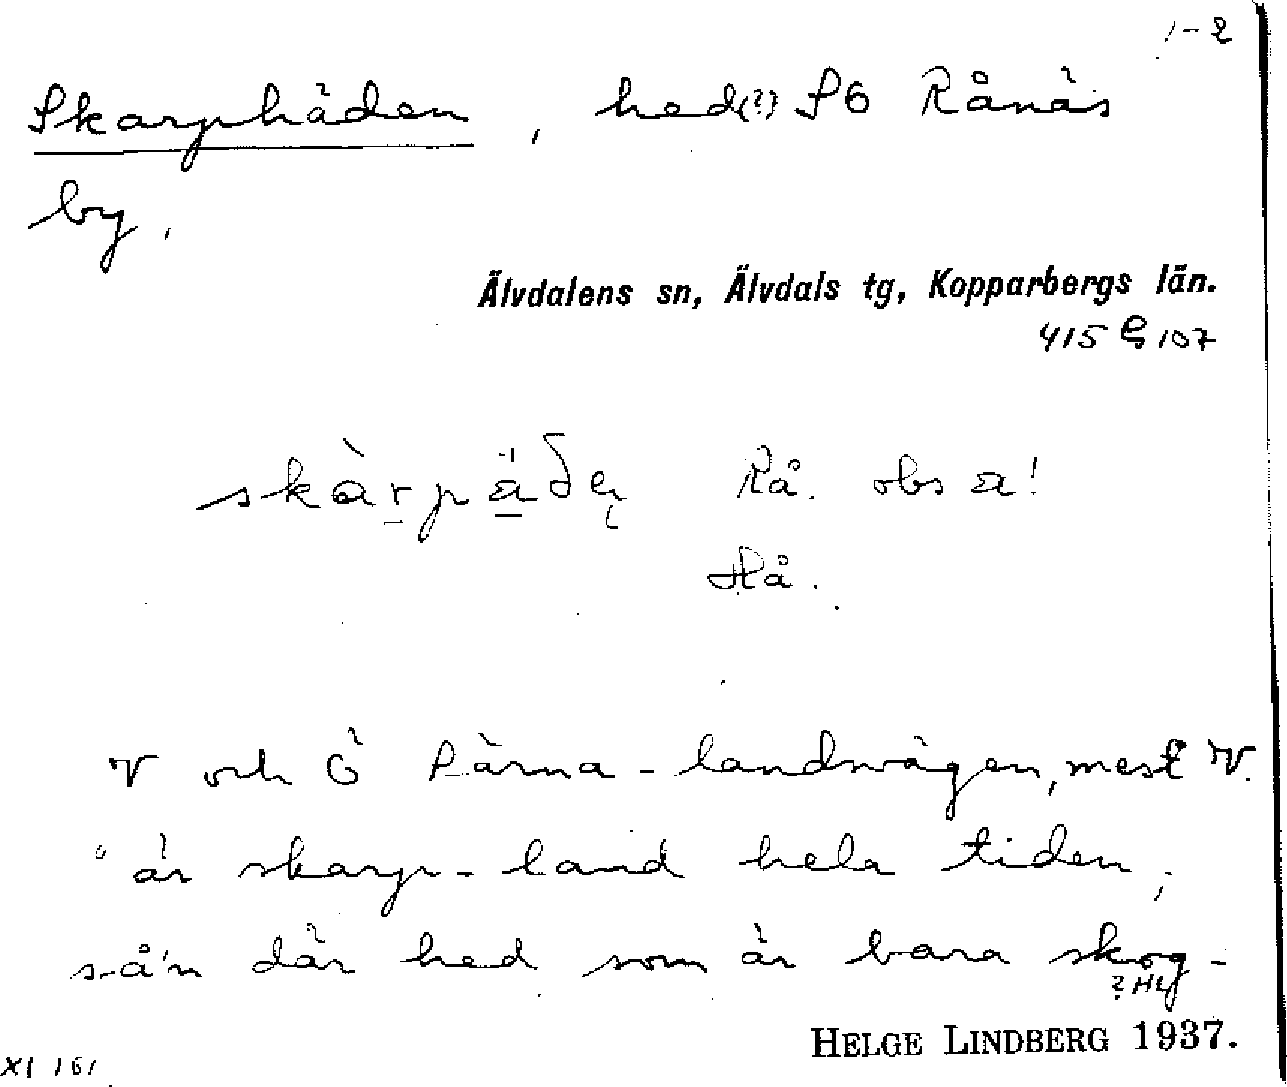 1-2
Skarphäden, hed(?) SÖ Rånäs
by,
Älvdalens sn, Älvdals tg, Kopparbergs län.
415 G 107
Rå. obs a!
Hå.
V och Ö Särna-landsvägen, mest V.
"är skarp-land hela tiden,
så'n där hed som är bara skog-
? HL
HELGE LINDBERG 1937.
XI 161